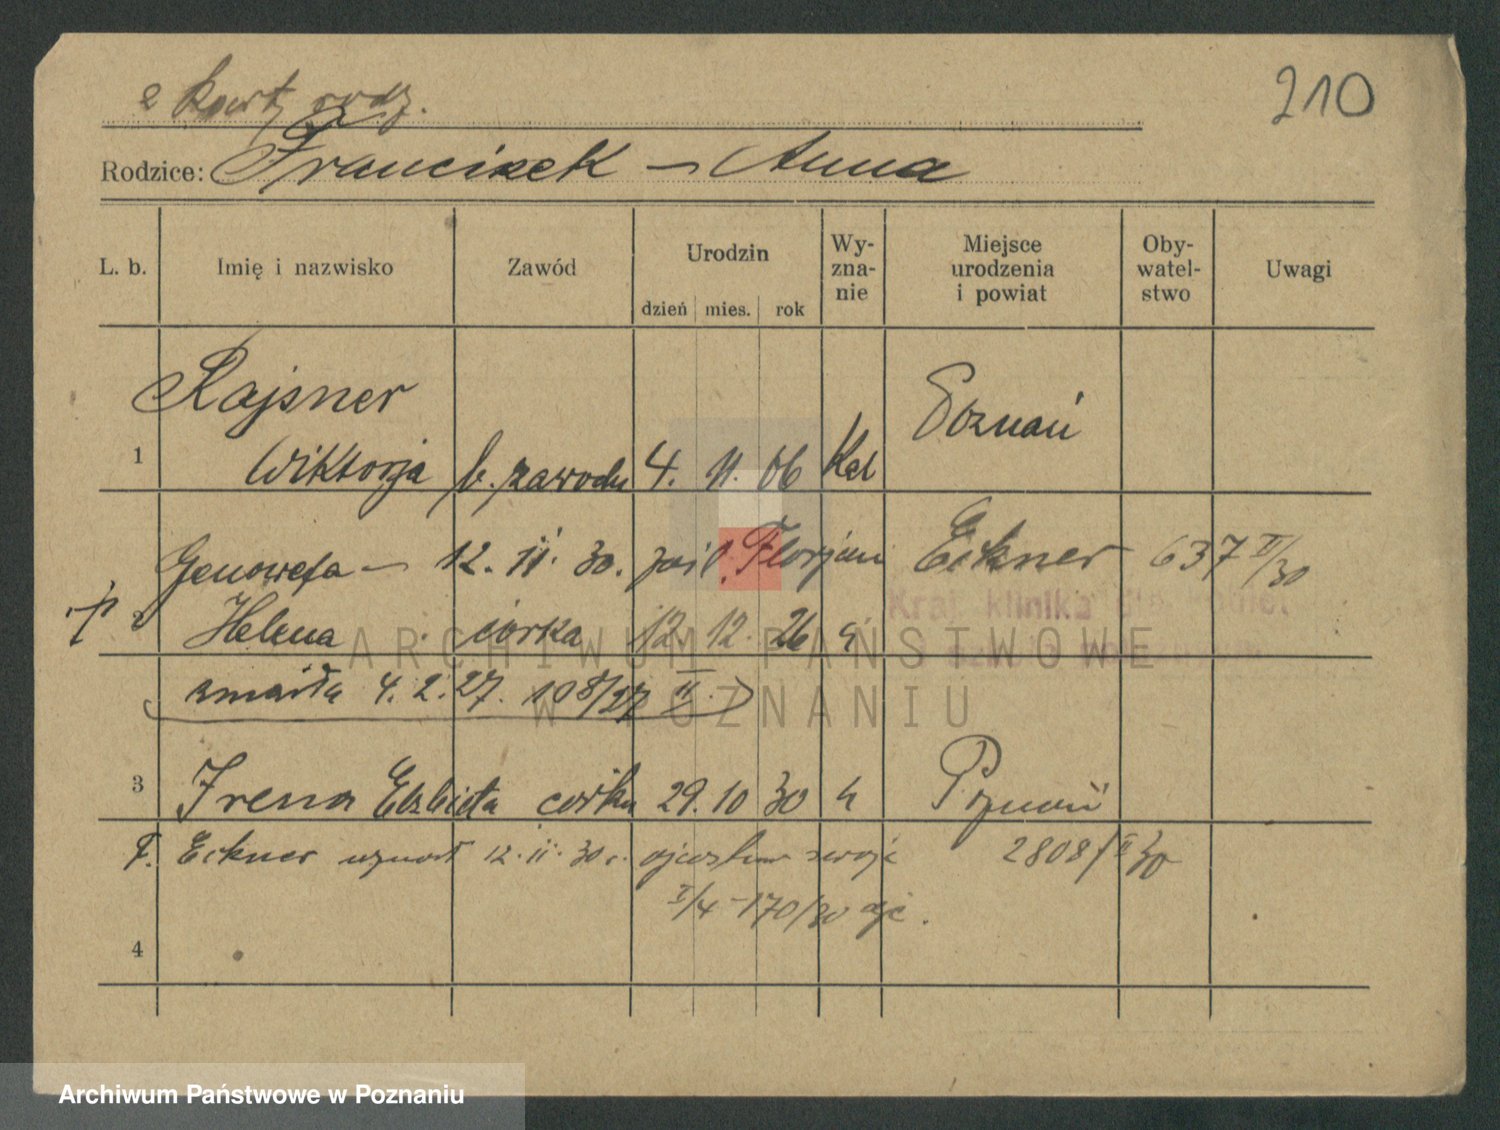 z karty rodz. 210
Rodzice: Franciszek – Anna
L. b. Imię i nazwisko Zawód Urodzin dzień mies. rok Wy-zna-nie Miejsce urodzenia i powiat Oby-watel-stwo Uwagi
Rajsner Poznań
1 Wiktorja b. zawodu 4. 11. 06 Kat
Genowefa – 12. 11. 30. Florjan Eckner 637 II/30
Kraj. klinika dla kobiet
2 Helena córka 12. 12. 26
ARCHIWUM PAŃSTWOWE
zmarła 4. 2. 27. 108/27 II
W POZNANIU
3 Irena Elzbieta córka 29. 10 30 Poznań
F. Eckner uznał 12. 11. 30 r. ojcostwo swoje 2808/II 30
I/4 – 170/30
4
Archiwum Państwowe w Poznaniu